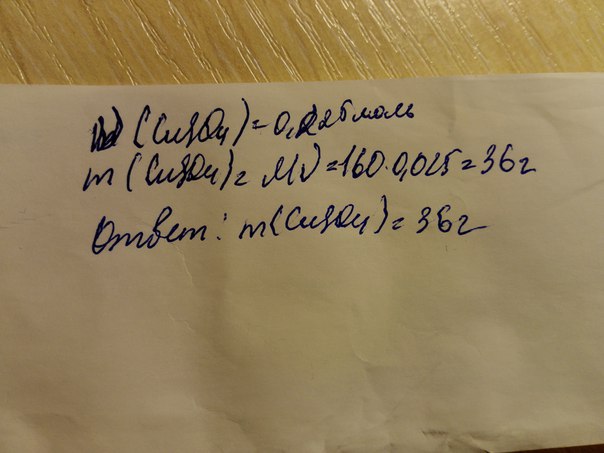 ν(CuSO4) = 0,225 моль
m(CuSO4) = Mν = 160·0,025 = 36 г
Ответ: m(CuSO4) = 36 г